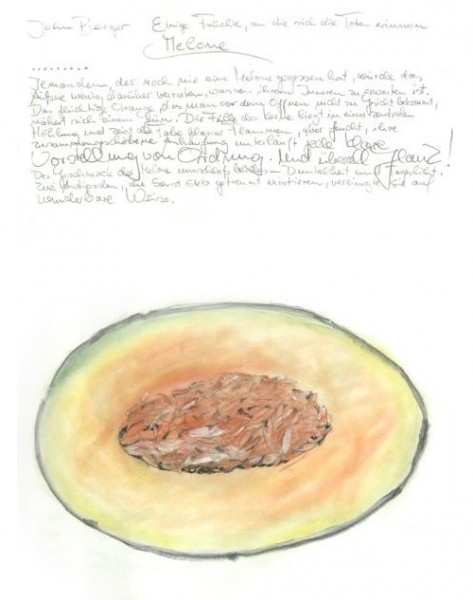 John Berger Einige Früchte, an die sich die Toten erinnern
Melone
Jemandem, der noch nie eine Melone gegessen hat, würde das
Äußere wenig darüber verraten, was in ihrem Inneren zu erwarten ist.
Das flüchtige Orange, das man vor dem Öffnen nicht zu Gesicht bekommt,
nähert sich einem Grün. Die Fülle der Kerne liegt in einer zentralen
Höhlung und zeigt die Farbe Flammen, aber feucht, ihre
zusammengeschobene Anhäufung unterläuft jede klare
Vorstellung von Ordnung. Und überall Glanz!
Der Geschmack der Melone umschließt beides – Dunkelheit und Tageslicht.
Zwei die sonst stets getrennt existieren, vereinigt sie auf
wunderbare Weise.